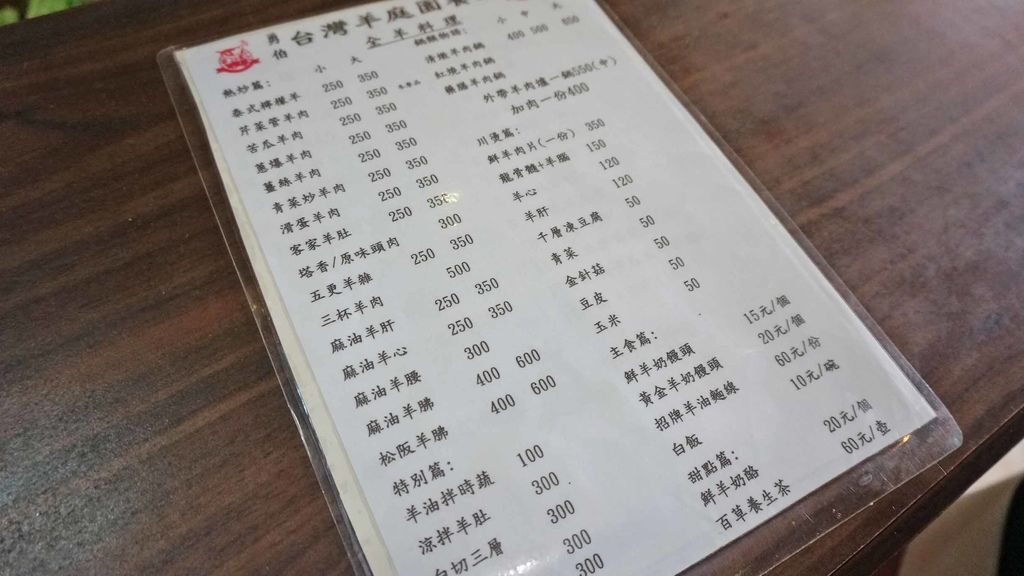 勇伯 台灣羊庭園
全羊料理
熱炒篇: 小 大
泰式檸檬羊 250 350
芹菜管羊肉 250 350
苦瓜羊肉 250 350
蔥爆羊肉 250 350
薑絲羊肉 250 350
青菜炒羊肉 250 350
滑蛋羊肉 250 350
客家羊肚 300
塔香/原味頭肉 250 350
五更羊雜 500
三杯羊肉 250 350
麻油羊肝 250 350
麻油羊心 300
麻油羊腰 400 600
麻油羊腩 400 600
松阪羊腩
特別篇:
羊油拌時蔬 100
涼拌羊肚 300
白切三層 300
300
300
鍋類物語: 小 中 大
清燉羊肉鍋 400 500 650
紅燒羊肉鍋
藥膳羊肉鍋
外帶羊肉爐一鍋550(中)
加肉一份400
川燙篇:
鮮羊肉片(一份) 350
龍骨髓+羊腦 150
羊心 120
羊肝 120
千層凍豆腐 50
青菜 50
金針菇 50
豆皮 50
玉米 50
主食篇:
鮮羊奶饅頭 15元/個
黃金羊奶饅頭 20元/個
招牌羊油麵線 60元/份
白飯 10元/碗
甜點篇:
鮮羊奶酪 20元/個
百草養生茶 60元/壺